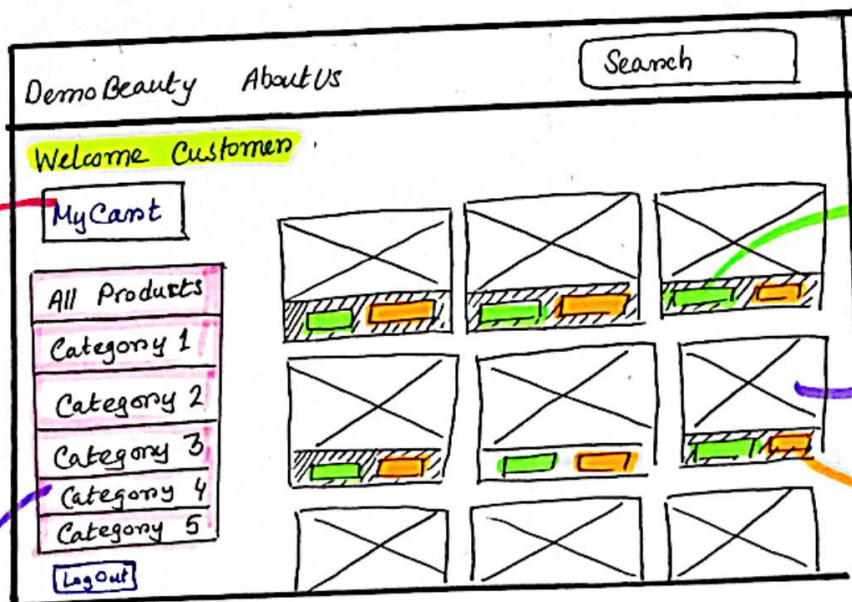 DemoBeauty AboutUs Search
Welcome Customer
My Cart
All Products
Category 1
Category 2
Category 3
Category 4
Category 5
LogOut